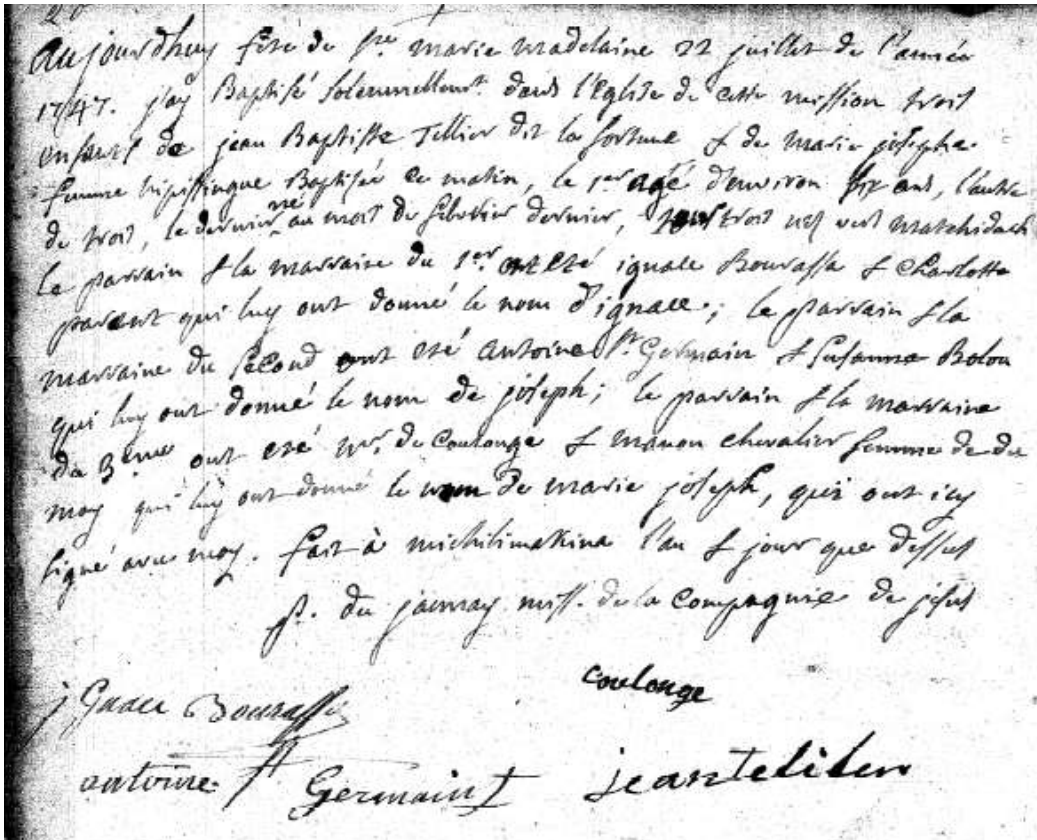 aujourdhuy fete de Ste marie madelaine 22 juillet de l'année
1747. j'ay Baptisé solemnellemt. dans l'Eglise de cette mission trois
enfants de jean Baptiste Tellier dit la fortune & de marie josephe
femme nipissingue Baptisée ce matin, le 1er agé d'environ six ans, l'autre
de trois, le dernier né au mois de febvrier dernier, tous trois nés vers matchidach
le parrain & la marraine du 1er. ont eté ignace Bourassa & Charlotte
parent qui luy ont donné le nom d'ignace; le parrain & la
marraine du second ont eté Antoine St Germain & Susanne Bolon
qui luy ont donné le nom de joseph; le parrain & la marraine
du 3eme ont eté mr. de Coulonge & manon chevalier femme de du
may qui luy ont donné le nom de marie joseph, qui ont icy
signé avec moy. fait à michilimakina l'an & jour que dessus
P. du jaunay miss. de la Compagnie de jesus
coulonge
jGnace Bourassa
antoine St Germain jeanteliler